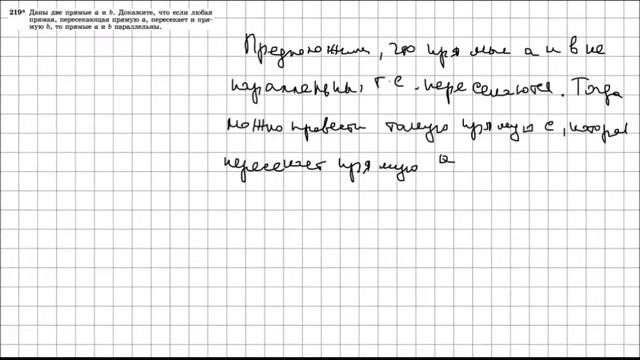 219* Даны две прямые a и b. Докажите, что если любая
прямая, пересекающая прямую a, пересекает и пря-
мую b, то прямые a и b параллельны.
Предположим, что прямые a и b не
параллельны, т.е. пересекаются. Тогда
можно провести такую прямую c, которая
пересекает прямую a